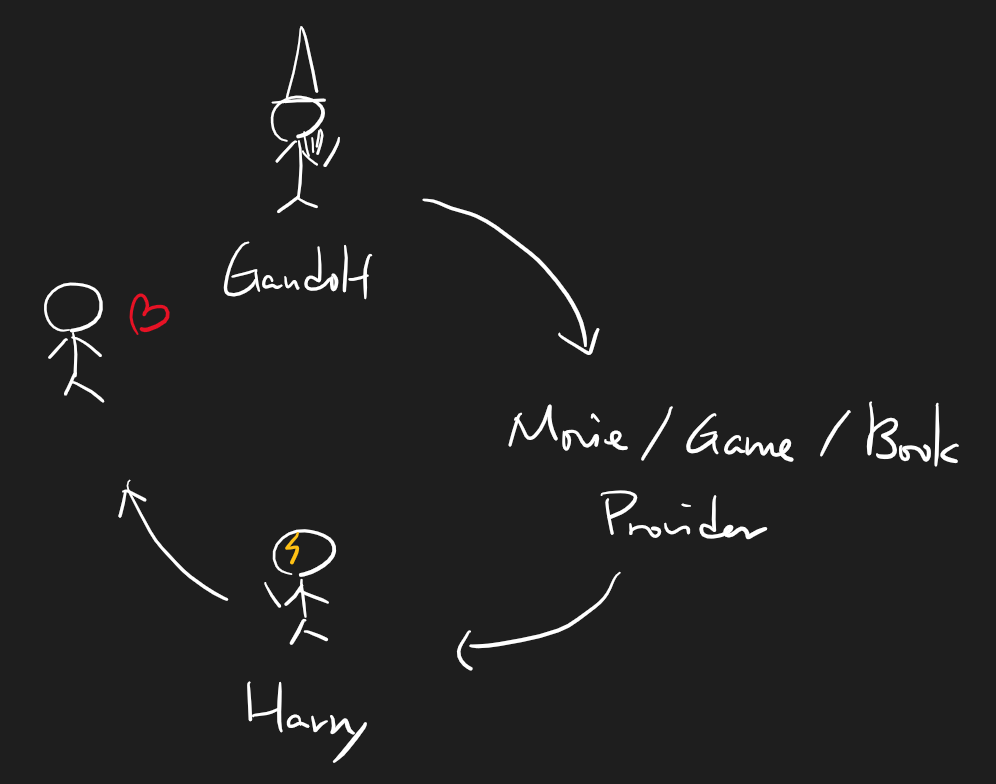 Gandolf
Movie / Game / Book
Provider
Harry